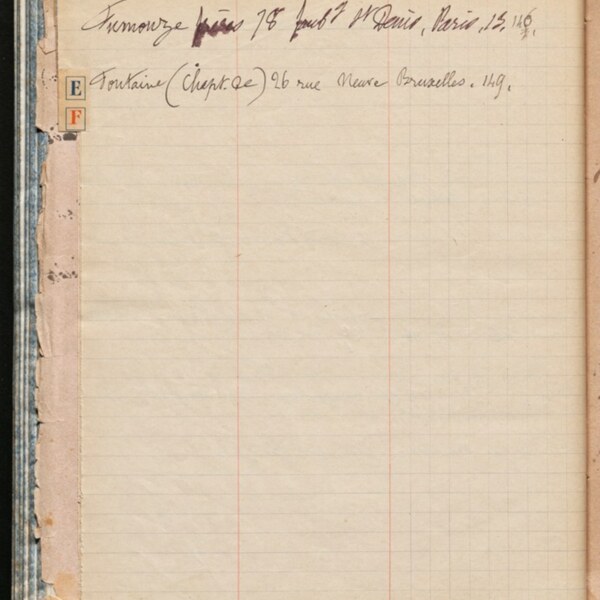 Fumouze frères 78 faubg St Denis, Paris, 13, 146.
E Fontaine (Chept. de) 26 rue Neuve Bruxelles. 149.
F